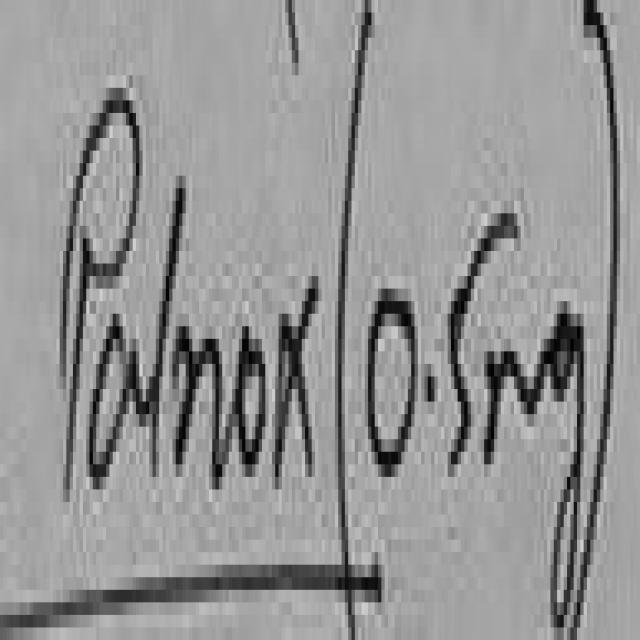 Palnox (0.5mg)